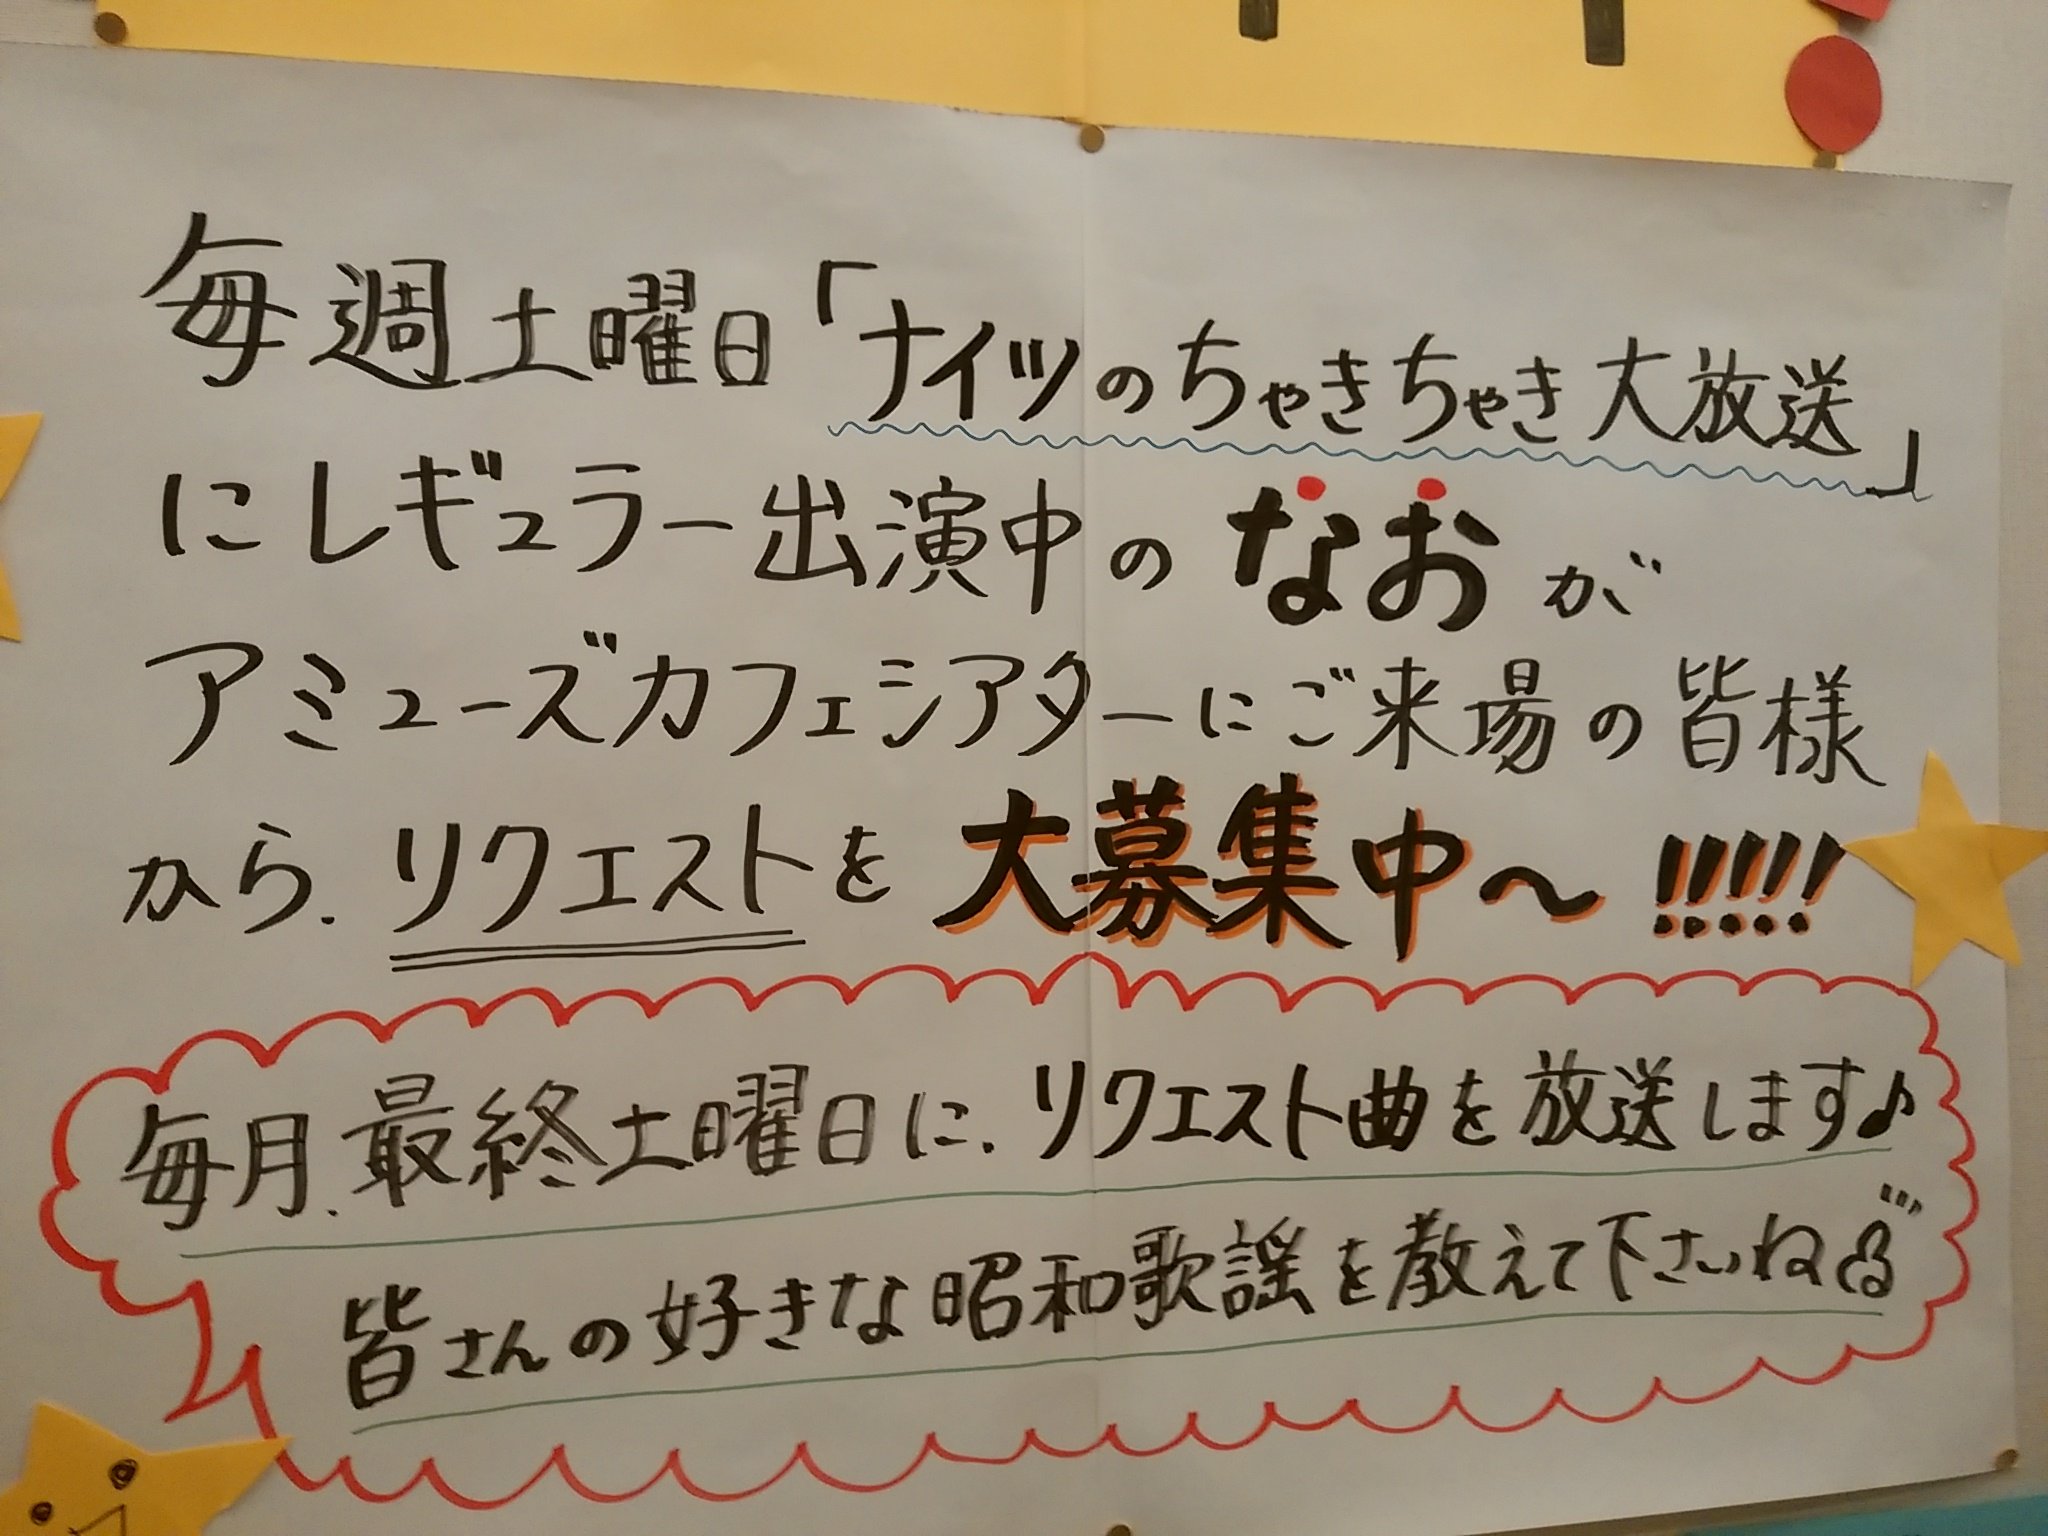 毎週土曜日「ナイツのちゃきちゃき大放送」
にレギュラー出演中のなおが
アミューズカフェシアターにご来場の皆様
から、リクエストを大募集中〜!!!!!
毎月、最終土曜日に、リクエスト曲を放送します♪
皆さんの好きな昭和歌謡を教えて下さいね